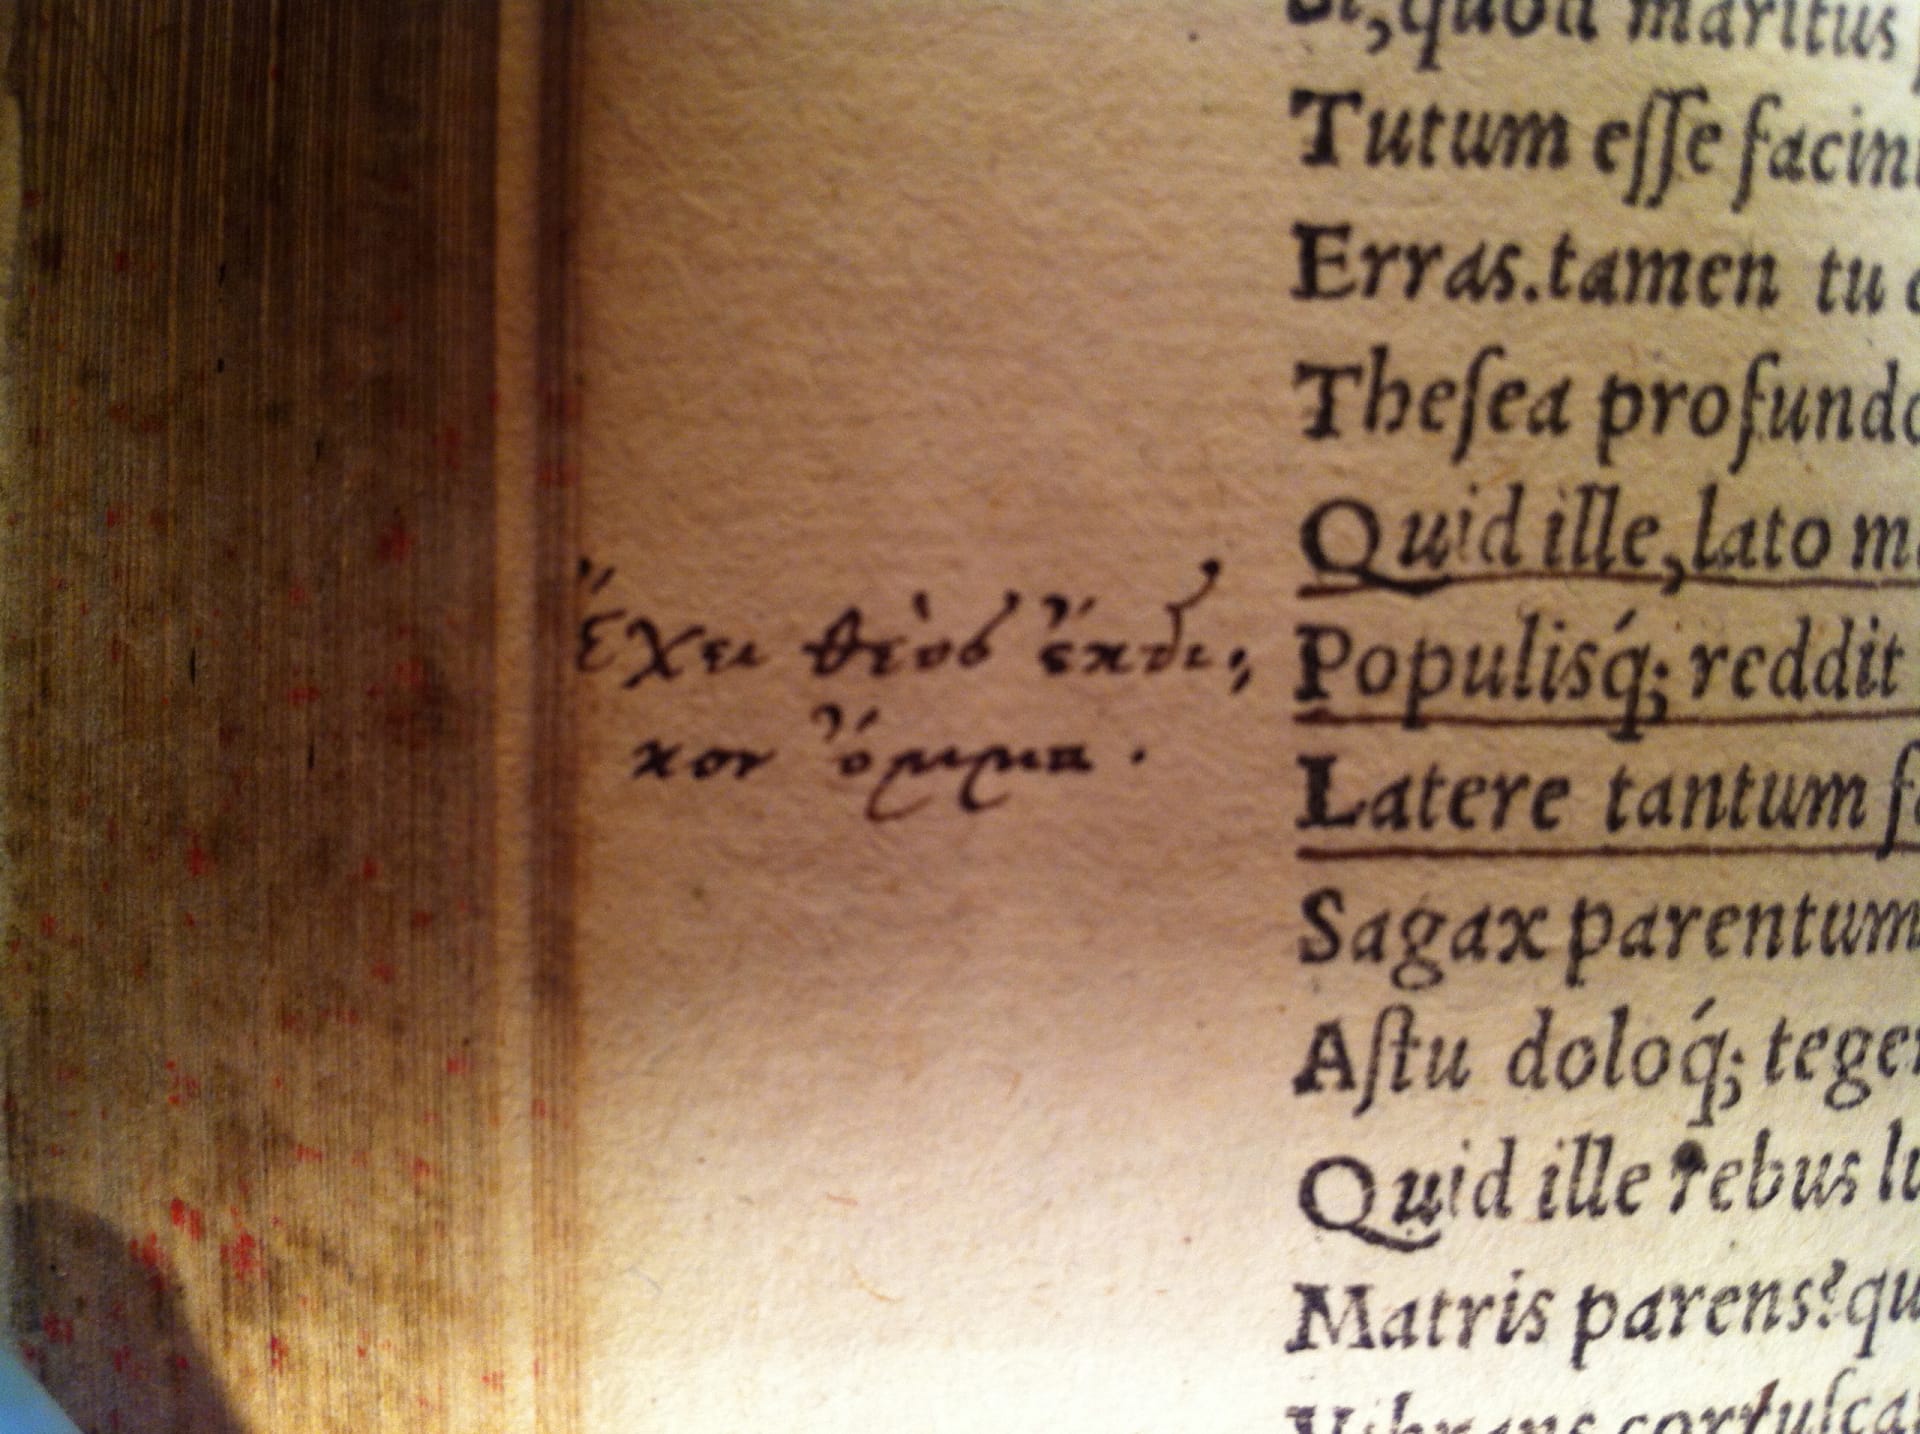 quod maritus
Tutum eſſe facin
Erras.tamen tu
Theſea profundo
Quid ille, lato m
Ἔχει θεὸς ἔκδι,
Populisq́; reddit
κον ὄμμα.
Latere tantum f
Sagax parentum
Aſtu doloq́; teger
Quid ille rebus lu
Matris parens? qu
Vibrans corruſca